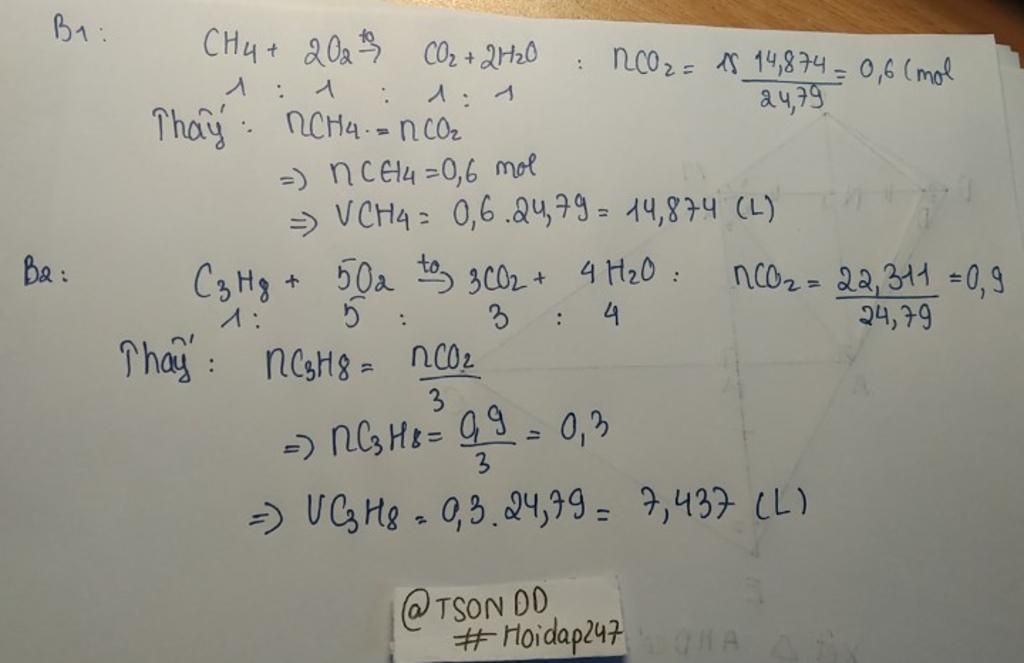 B1: CH4 + 2O2 to→ CO2 + 2H2O : nCO2 = 14,874/24,79 = 0,6 (mol
1 : 1 : 1 : 1
Thấy: nCH4 = nCO2
=> nCH4 = 0,6 mol
=> VCH4 = 0,6 . 24,79 = 14,874 (L)
B2: C3H8 + 5O2 to→ 3CO2 + 4H2O : nCO2 = 22,311/24,79 = 0,9
1 : 5 : 3 : 4
Thấy: nC3H8 = nCO2/3
=> nC3H8 = 0,9/3 = 0,3
=> VC3H8 = 0,3 . 24,79 = 7,437 (L)
@TSON DD
#Hoidap247